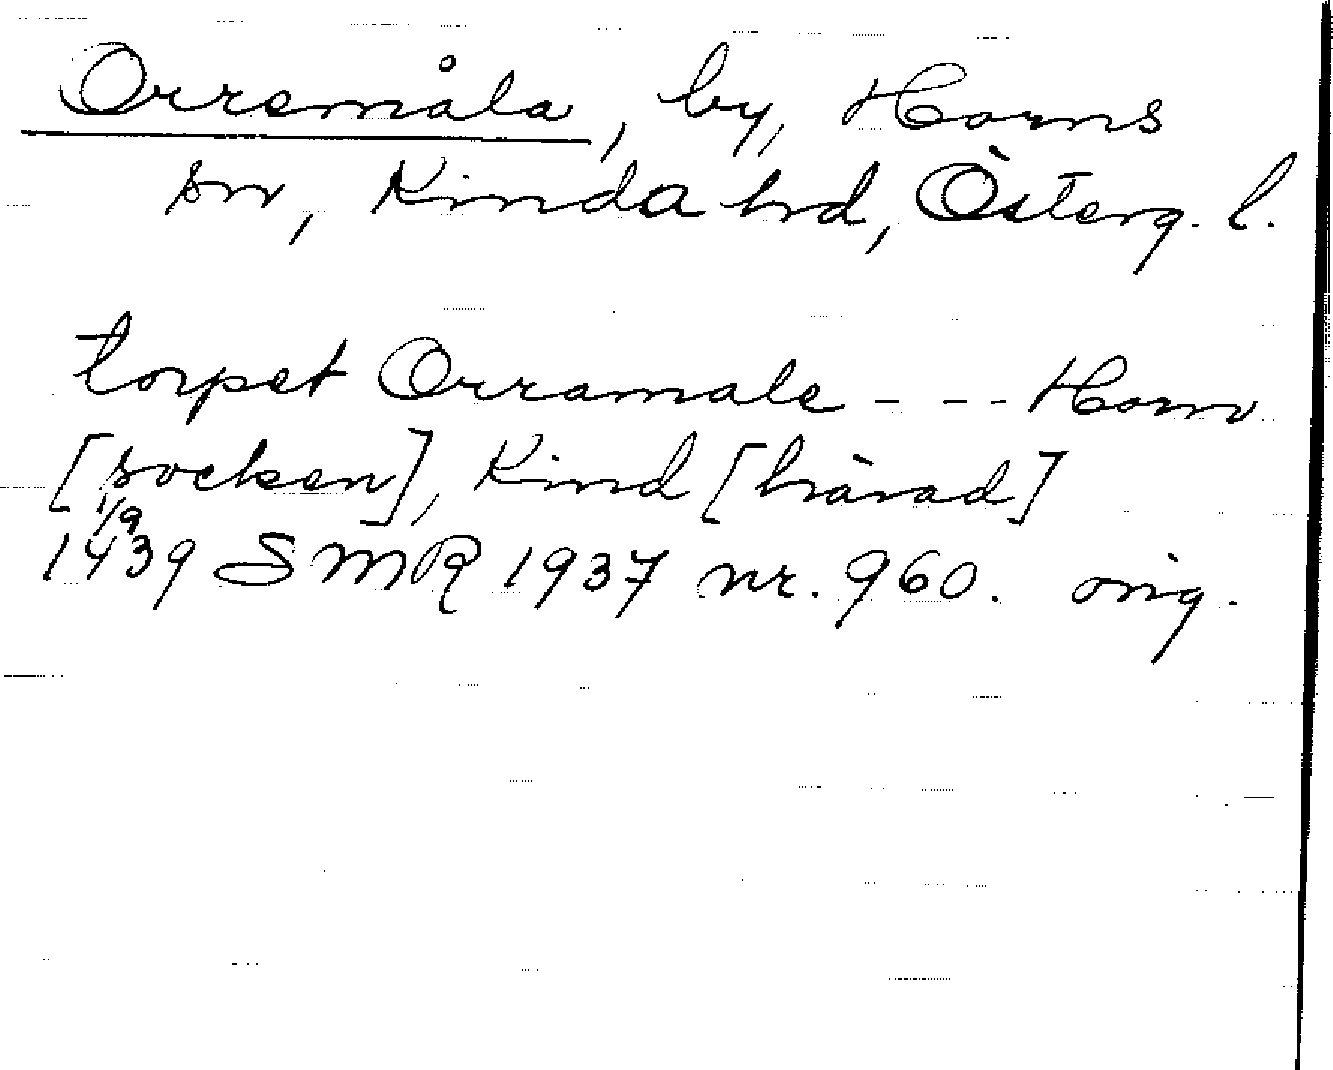 Orremåla, by, Horns
sn, Kinda hd, Österg. l.
torpet Orramale - - - Horn
[socken], Kind [härad]
1/9
1439 SMR 1937 nr. 960. orig.